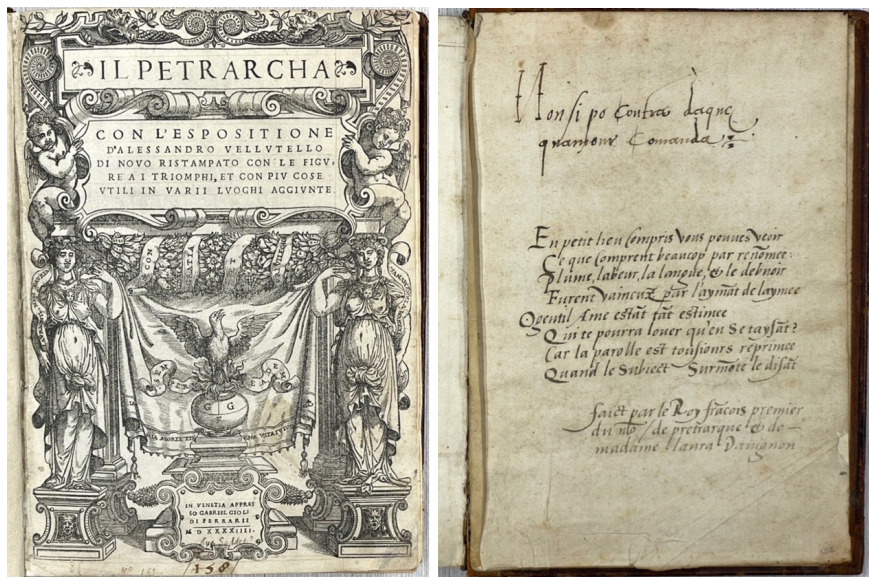 IL PETRARCHA
CON L'ESPOSITIONE
D'ALESSANDRO VELLVTELLO
DI NOVO RISTAMPATO CON LE FIGV-
RE A I TRIOMPHI, ET CON PIV COSE
VTILI IN VARII LVOGHI AGGIVNTE.
SEMPER EADEM
G G
IN VENETIA APPRES
SO GABRIEL GIOLI
DI FERRARII
M D XXXXIIII.
158
Non si po Contra daque
quamour Comanda
En petit lieu Compris Vous pouues Veoir
Ce que Comprent beaucop par renomee:
Plume, labeur, la langue, & le debuoir
Furent Vaincuz par laymãt de laymee
O gentil Ame estãt tãt estimee
Qui te pourra louer qu'en Se taysãt?
Car la parolle est tousiours reprimee
Quand le Subiect Surmõte le disãt
faict par le Roy frãcois premier
du nõ / de pretrarque & de
madame laura Dauignon